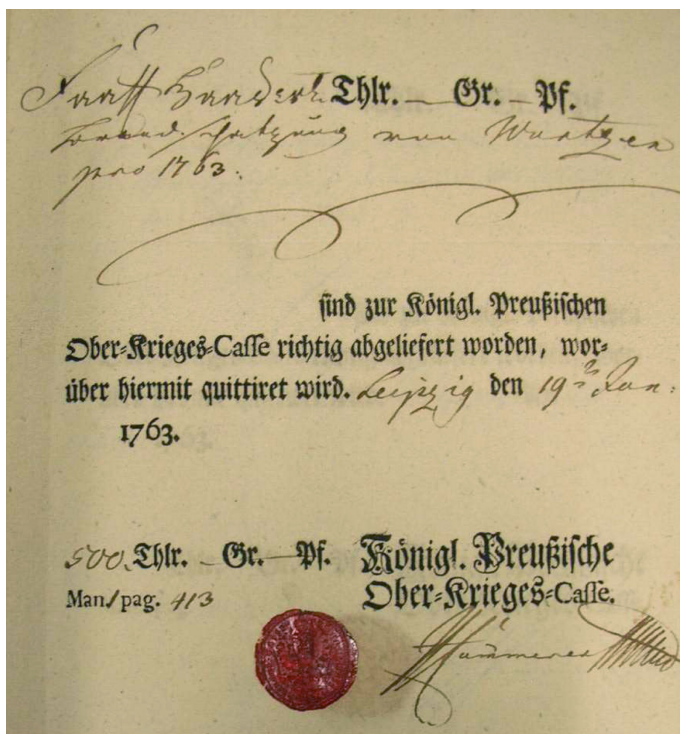 Fünff Hundert Thlr. — Gr. — Pf.
Brandschatzung von Wurtzen
pro 1763.
sind zur Königl. Preußischen
Ober-Krieges-Casse richtig abgeliefert worden, wor-
über hiermit quittiret wird. Leipzig den 19ᵗ Jan:
1763.
500. Thlr. — Gr. — Pf. Königl. Preußische
Man/pag. 413 Ober-Krieges-Casse.